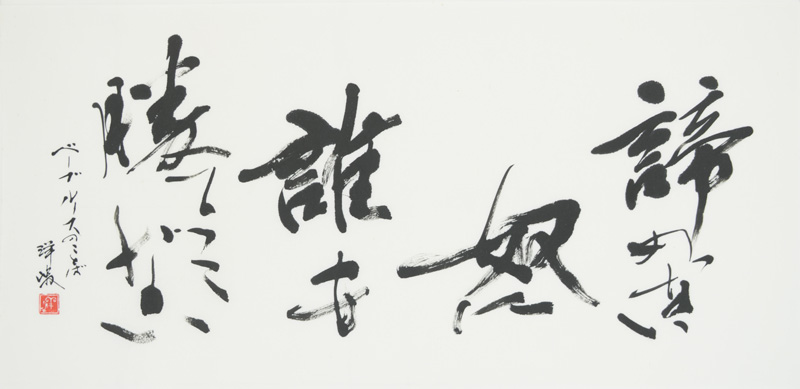 諦めない
奴に
誰も
勝てない
ベーブルースのことば